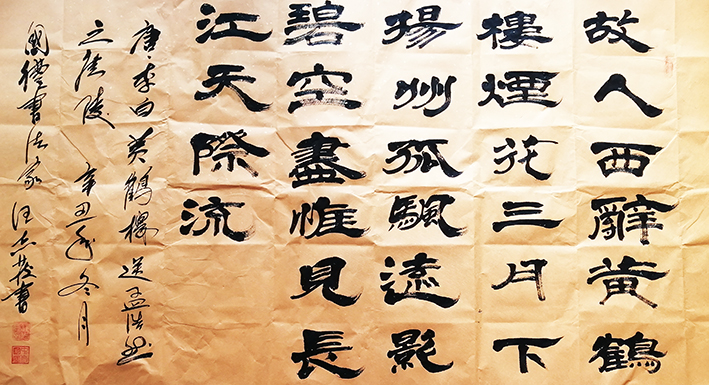 故人西辭黄鶴
樓煙花三月下
揚州孤颿遠影
碧空盡惟見長
江天際流
唐·李白黄鶴樓送孟浩然
之廣陵 辛丑年冬月
國禮書法家 汪志書